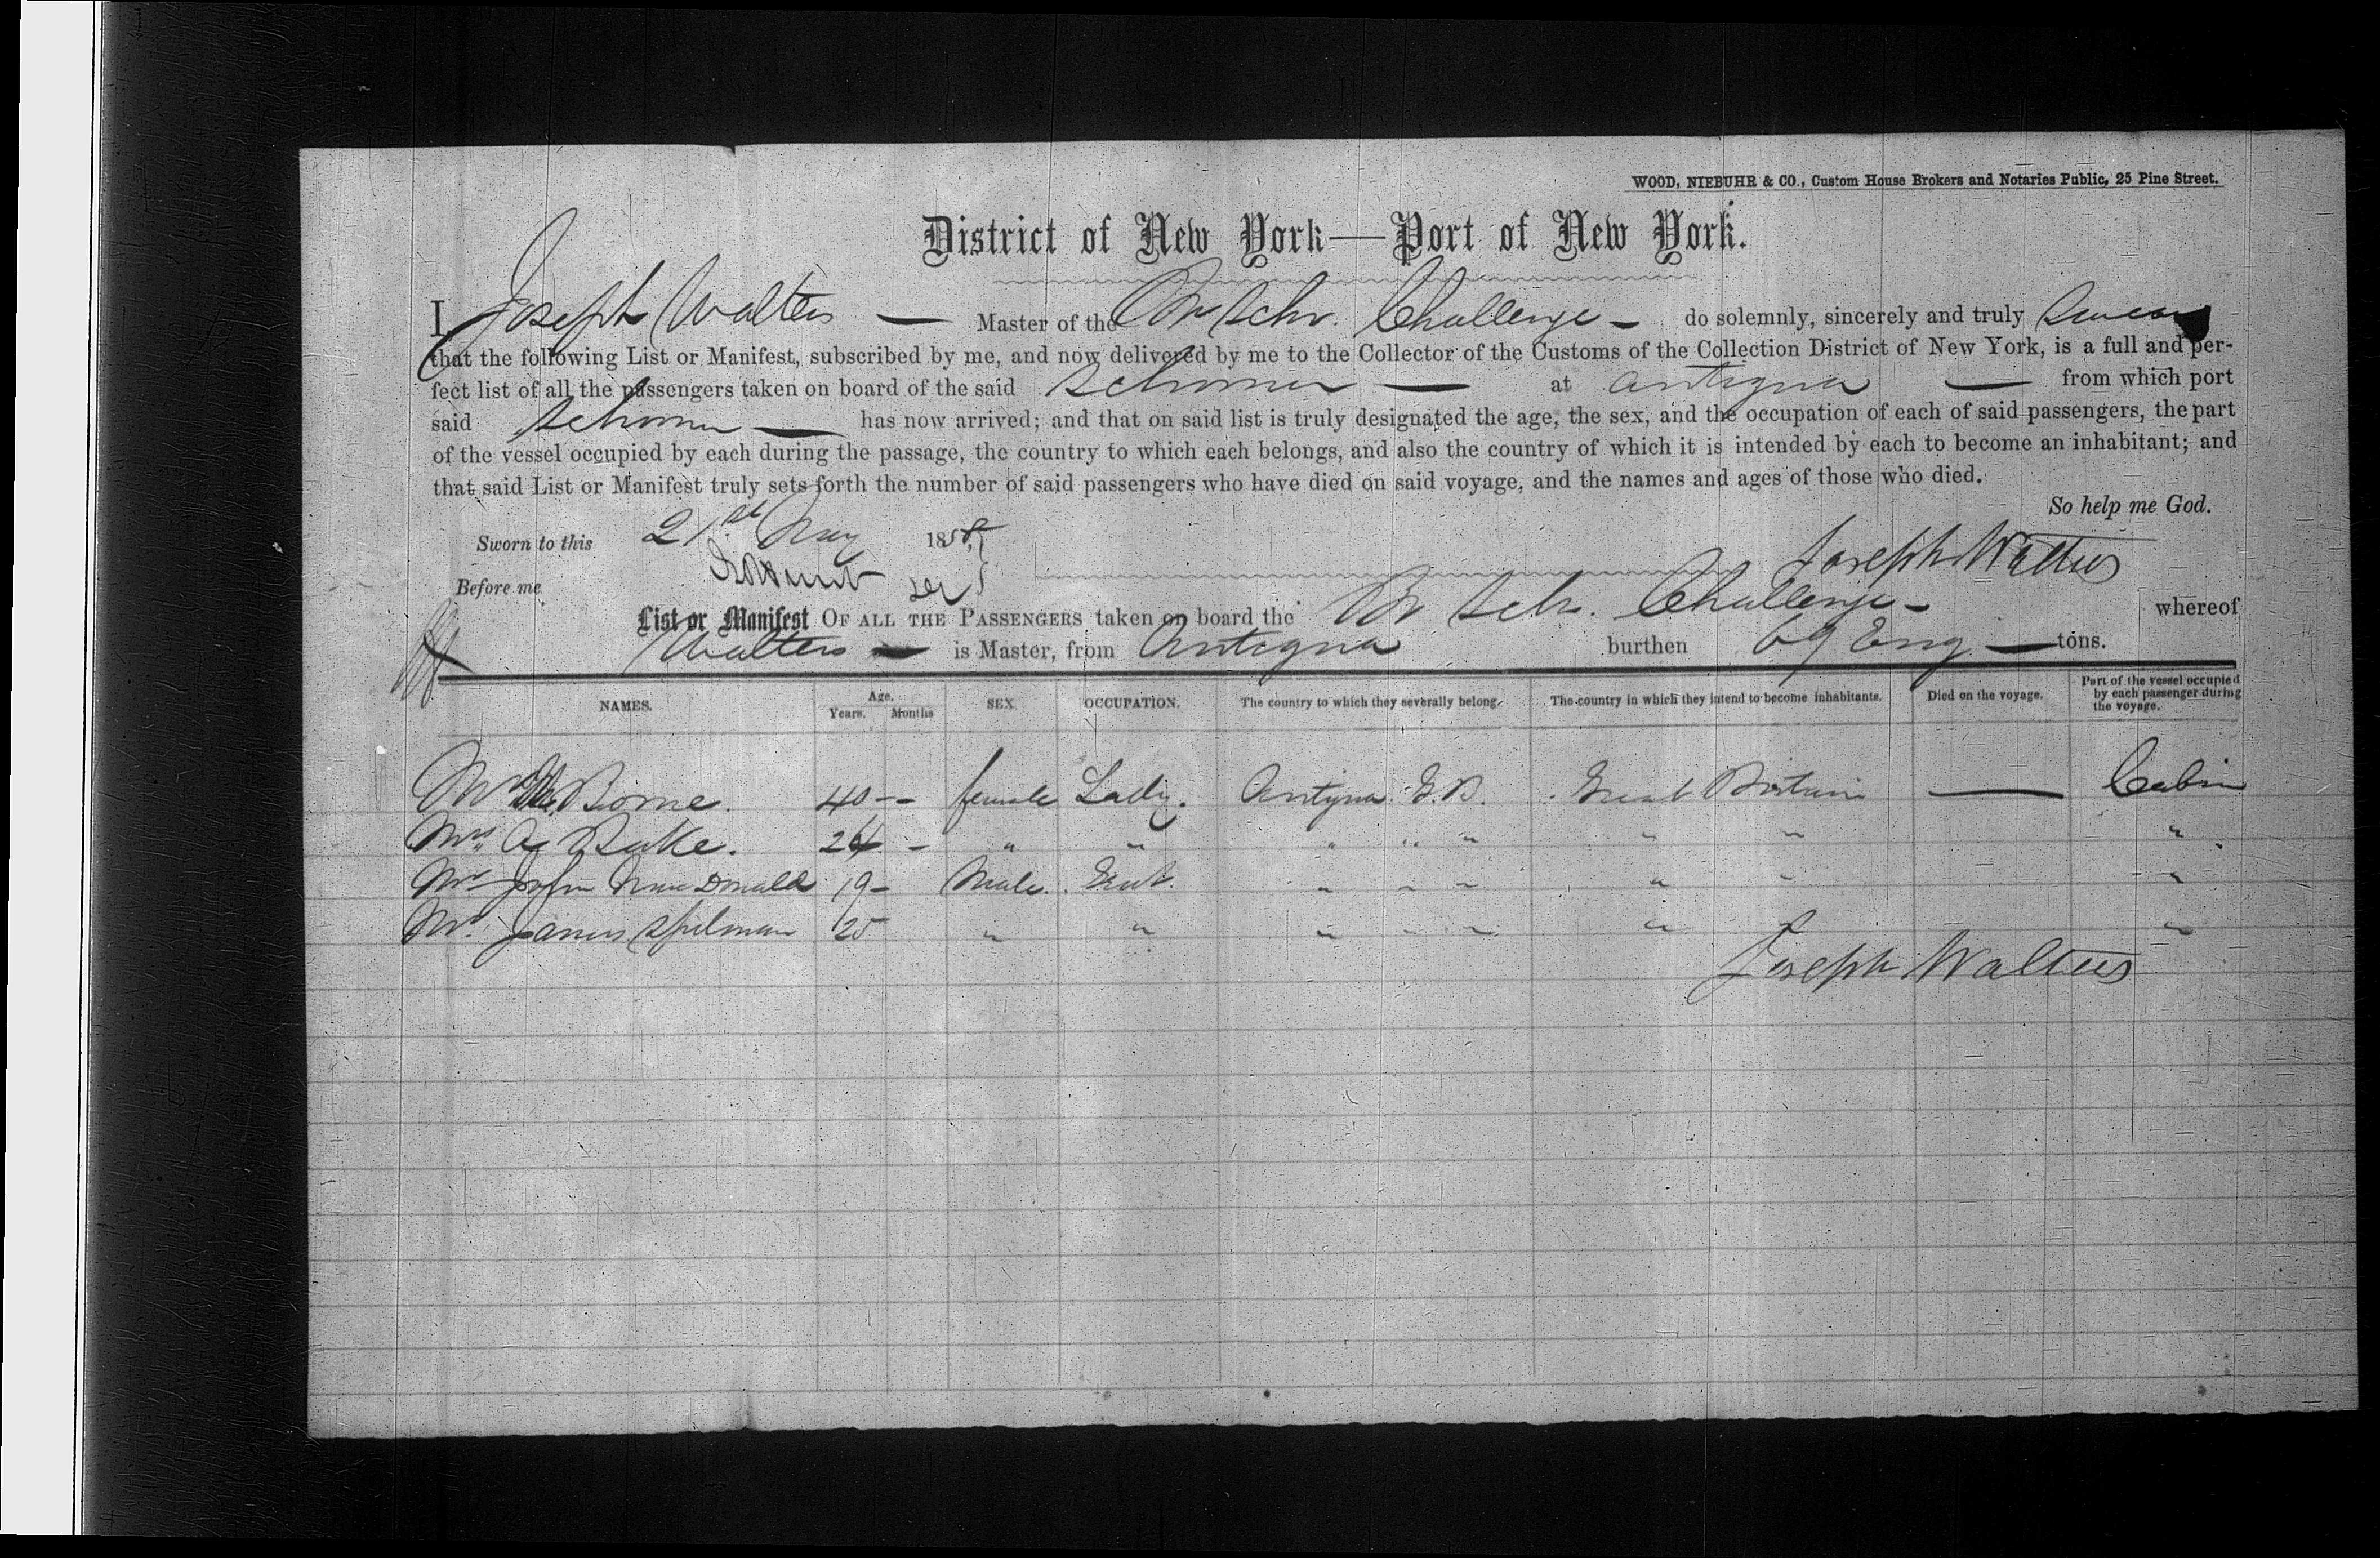 WOOD, NIEBUHR & CO., Custom House Brokers and Notaries Public, 25 Pine Street.
District of New York—Port of New York.
I, Joseph Walters — Master of the Br Schr. Challenge — do solemnly, sincerely and truly Swear
that the following List or Manifest, subscribed by me, and now delivered by me to the Collector of the Customs of the Collection District of New York, is a full and per-
fect list of all the passengers taken on board of the said Schooner — at Antigua — from which port
said Schooner — has now arrived; and that on said list is truly designated the age, the sex, and the occupation of each of said passengers, the part
of the vessel occupied by each during the passage, the country to which each belongs, and also the country of which it is intended by each to become an inhabitant; and
that said List or Manifest truly sets forth the number of said passengers who have died on said voyage, and the names and ages of those who died.
So help me God.
Sworn to this 21st May 1858
Joseph Walters
Before me
List or Manifest OF ALL THE PASSENGERS taken on board the Br Schr. Challenge — whereof
Walters — is Master, from Antigua burthen 69 Eng — tons.
NAMES. Age. Years. Months SEX. OCCUPATION. The country to which they severally belong. The country in which they intend to become inhabitants. Died on the voyage. Part of the vessel occupied by each passenger during the voyage.
Borne. 40 -- female Lady. Antigua G.B. Great Britain — Cabin
Mrs. A. Buke. 24 - " " " " " " " "
Mr John MacDonald 19 - Male. Gent. " " " " " "
Mr. James Spelman 25 " " " " " " " "
Joseph Walters